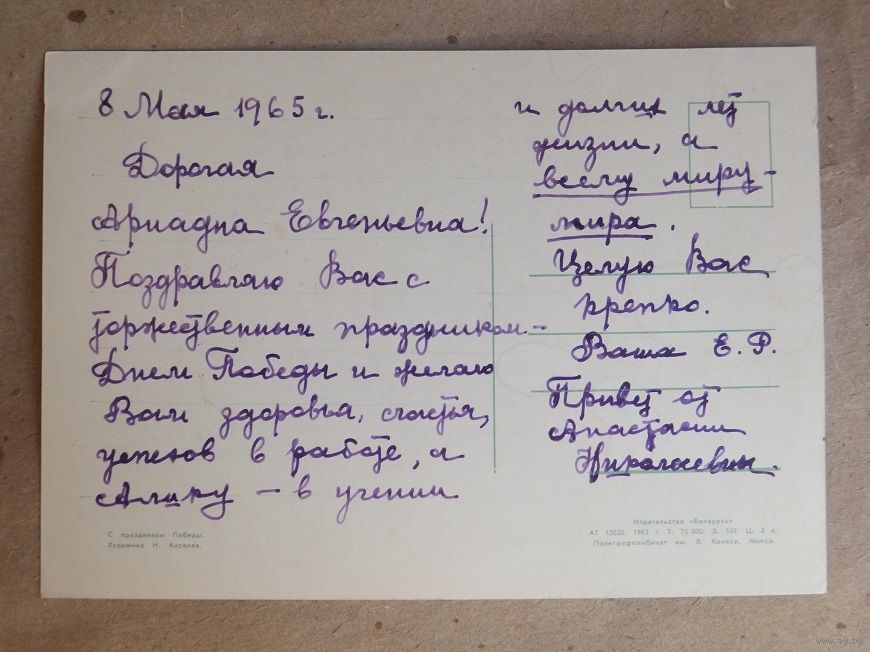 8 Мая 1965 г.
Дорогая
Ариадна Евгеньевна!
Поздравляю Вас с
торжественным праздником –
Днем Победы и желаю
Вам здоровья, счастья,
успехов в работе, а
Алику – в учении
и долгих лет
жизни, а
всему миру –
мира.
Целую Вас
крепко.
Ваша Е. Р.
Привет от
Анастасии
Николаевны.
С праздником Победы.
Художник Н. Киселев.
Издательство «Беларусь»
АТ 10020. 1965 г. Т. 75 000. З. 559. Ц. 2 к.
Полиграфкомбинат им. Я. Коласа. Минск.
www.ay.by